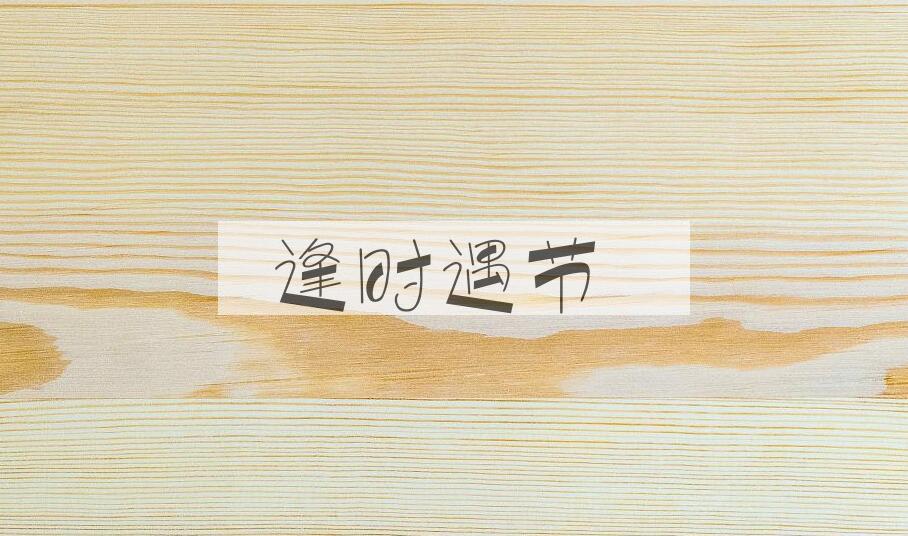 逢时遇节